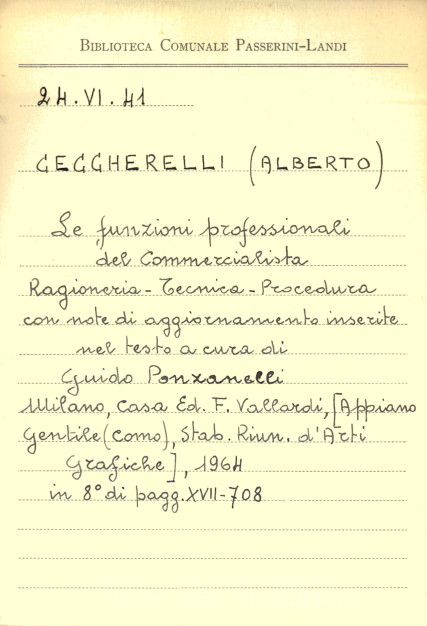 BIBLIOTECA COMUNALE PASSERINI-LANDI
24.VI.41
CECCHERELLI (ALBERTO)
Le funzioni professionali
del Commercialista
Ragioneria - Tecnica - Procedura
con note di aggiornamento inserite
nel testo a cura di
Guido Ponzanelli
Milano, Casa Ed. F. Vallardi, [Appiano
Gentile (Como), Stab. Riun. d'Arti
Grafiche], 1964
in 8° di pagg. XVII-708